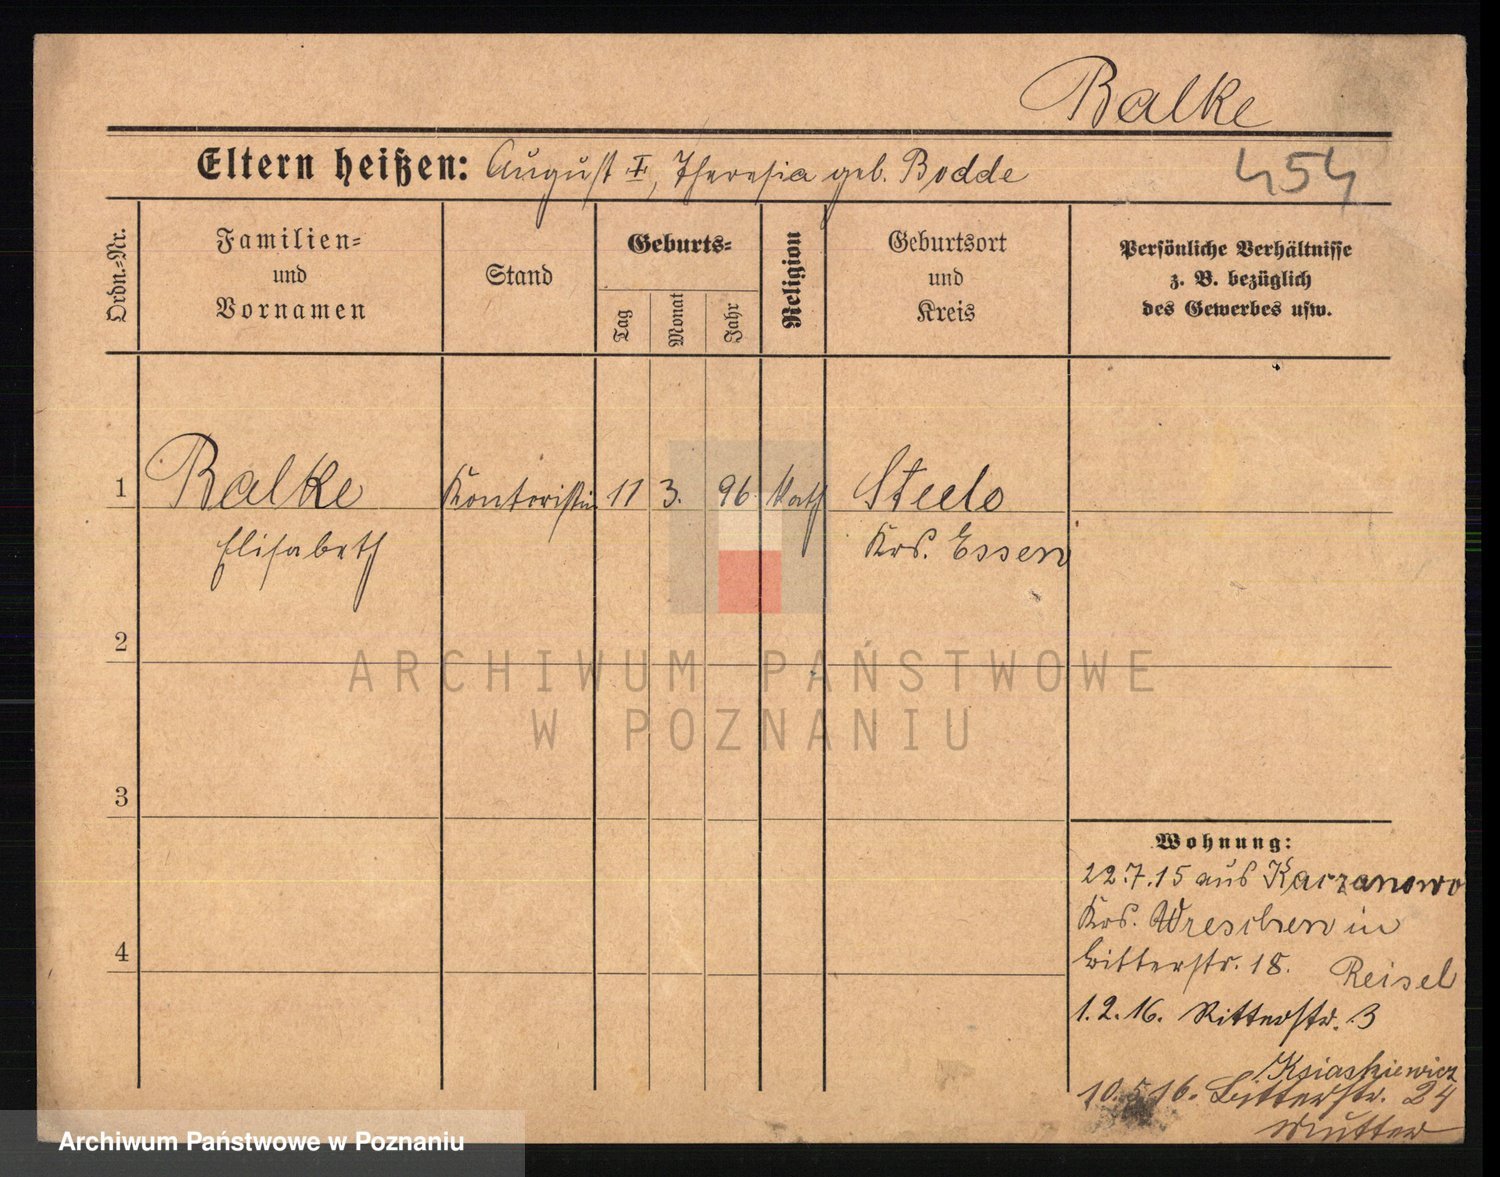 Balke
Eltern heißen: August I, Theresia geb. Bodde
454
Ordn.=Nr.
Familien=
und
Vornamen
Stand
Geburts=
Tag
Monat
Jahr
Religion
Geburtsort
und
Kreis
Persönliche Verhältnisse
z. B. bezüglich
des Gewerbes usw.
1 Balke Kontoristin 11 3. 96. kath Steele
Elisabeth Krs. Essen
2
3
4
ARCHIWUM PAŃSTWOWE
W POZNANIU
Wohnung:
22.7.15 aus Kaczanowo
Krs. Wreschen in
Bitterstr. 18. Reisel
1.2.16. Ritterstr. 3
Ksiaskiewicz
10.5.16. Bitterstr. 24
Mutter
Archiwum Państwowe w Poznaniu